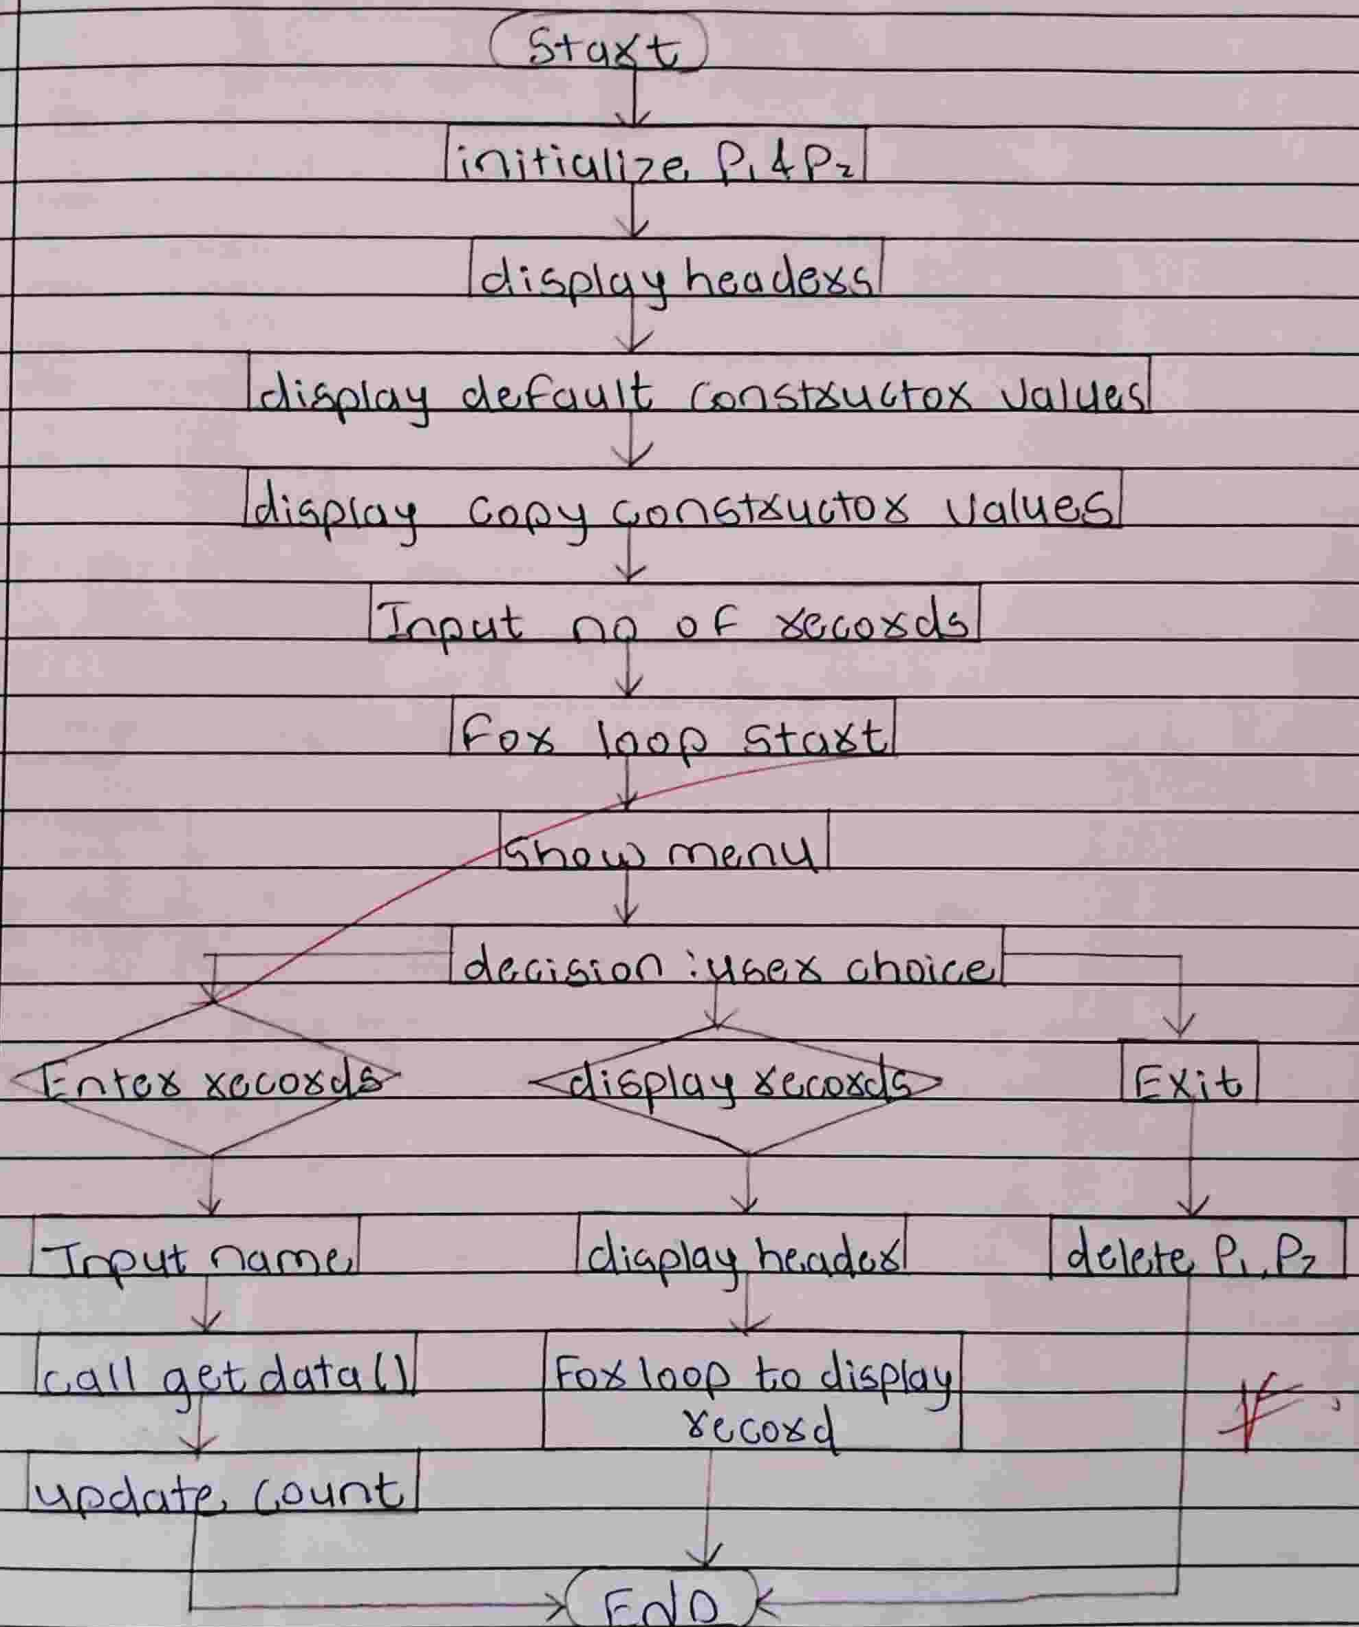 Start
initialize P1 & P2
display headers
display default constructor values
display copy constructor values
Input no of records
For loop start
Show menu
decision : user choice
Enter records
display records
Exit
Input name
display header
delete P1, P2
call getdata()
For loop to display
record
update count
END